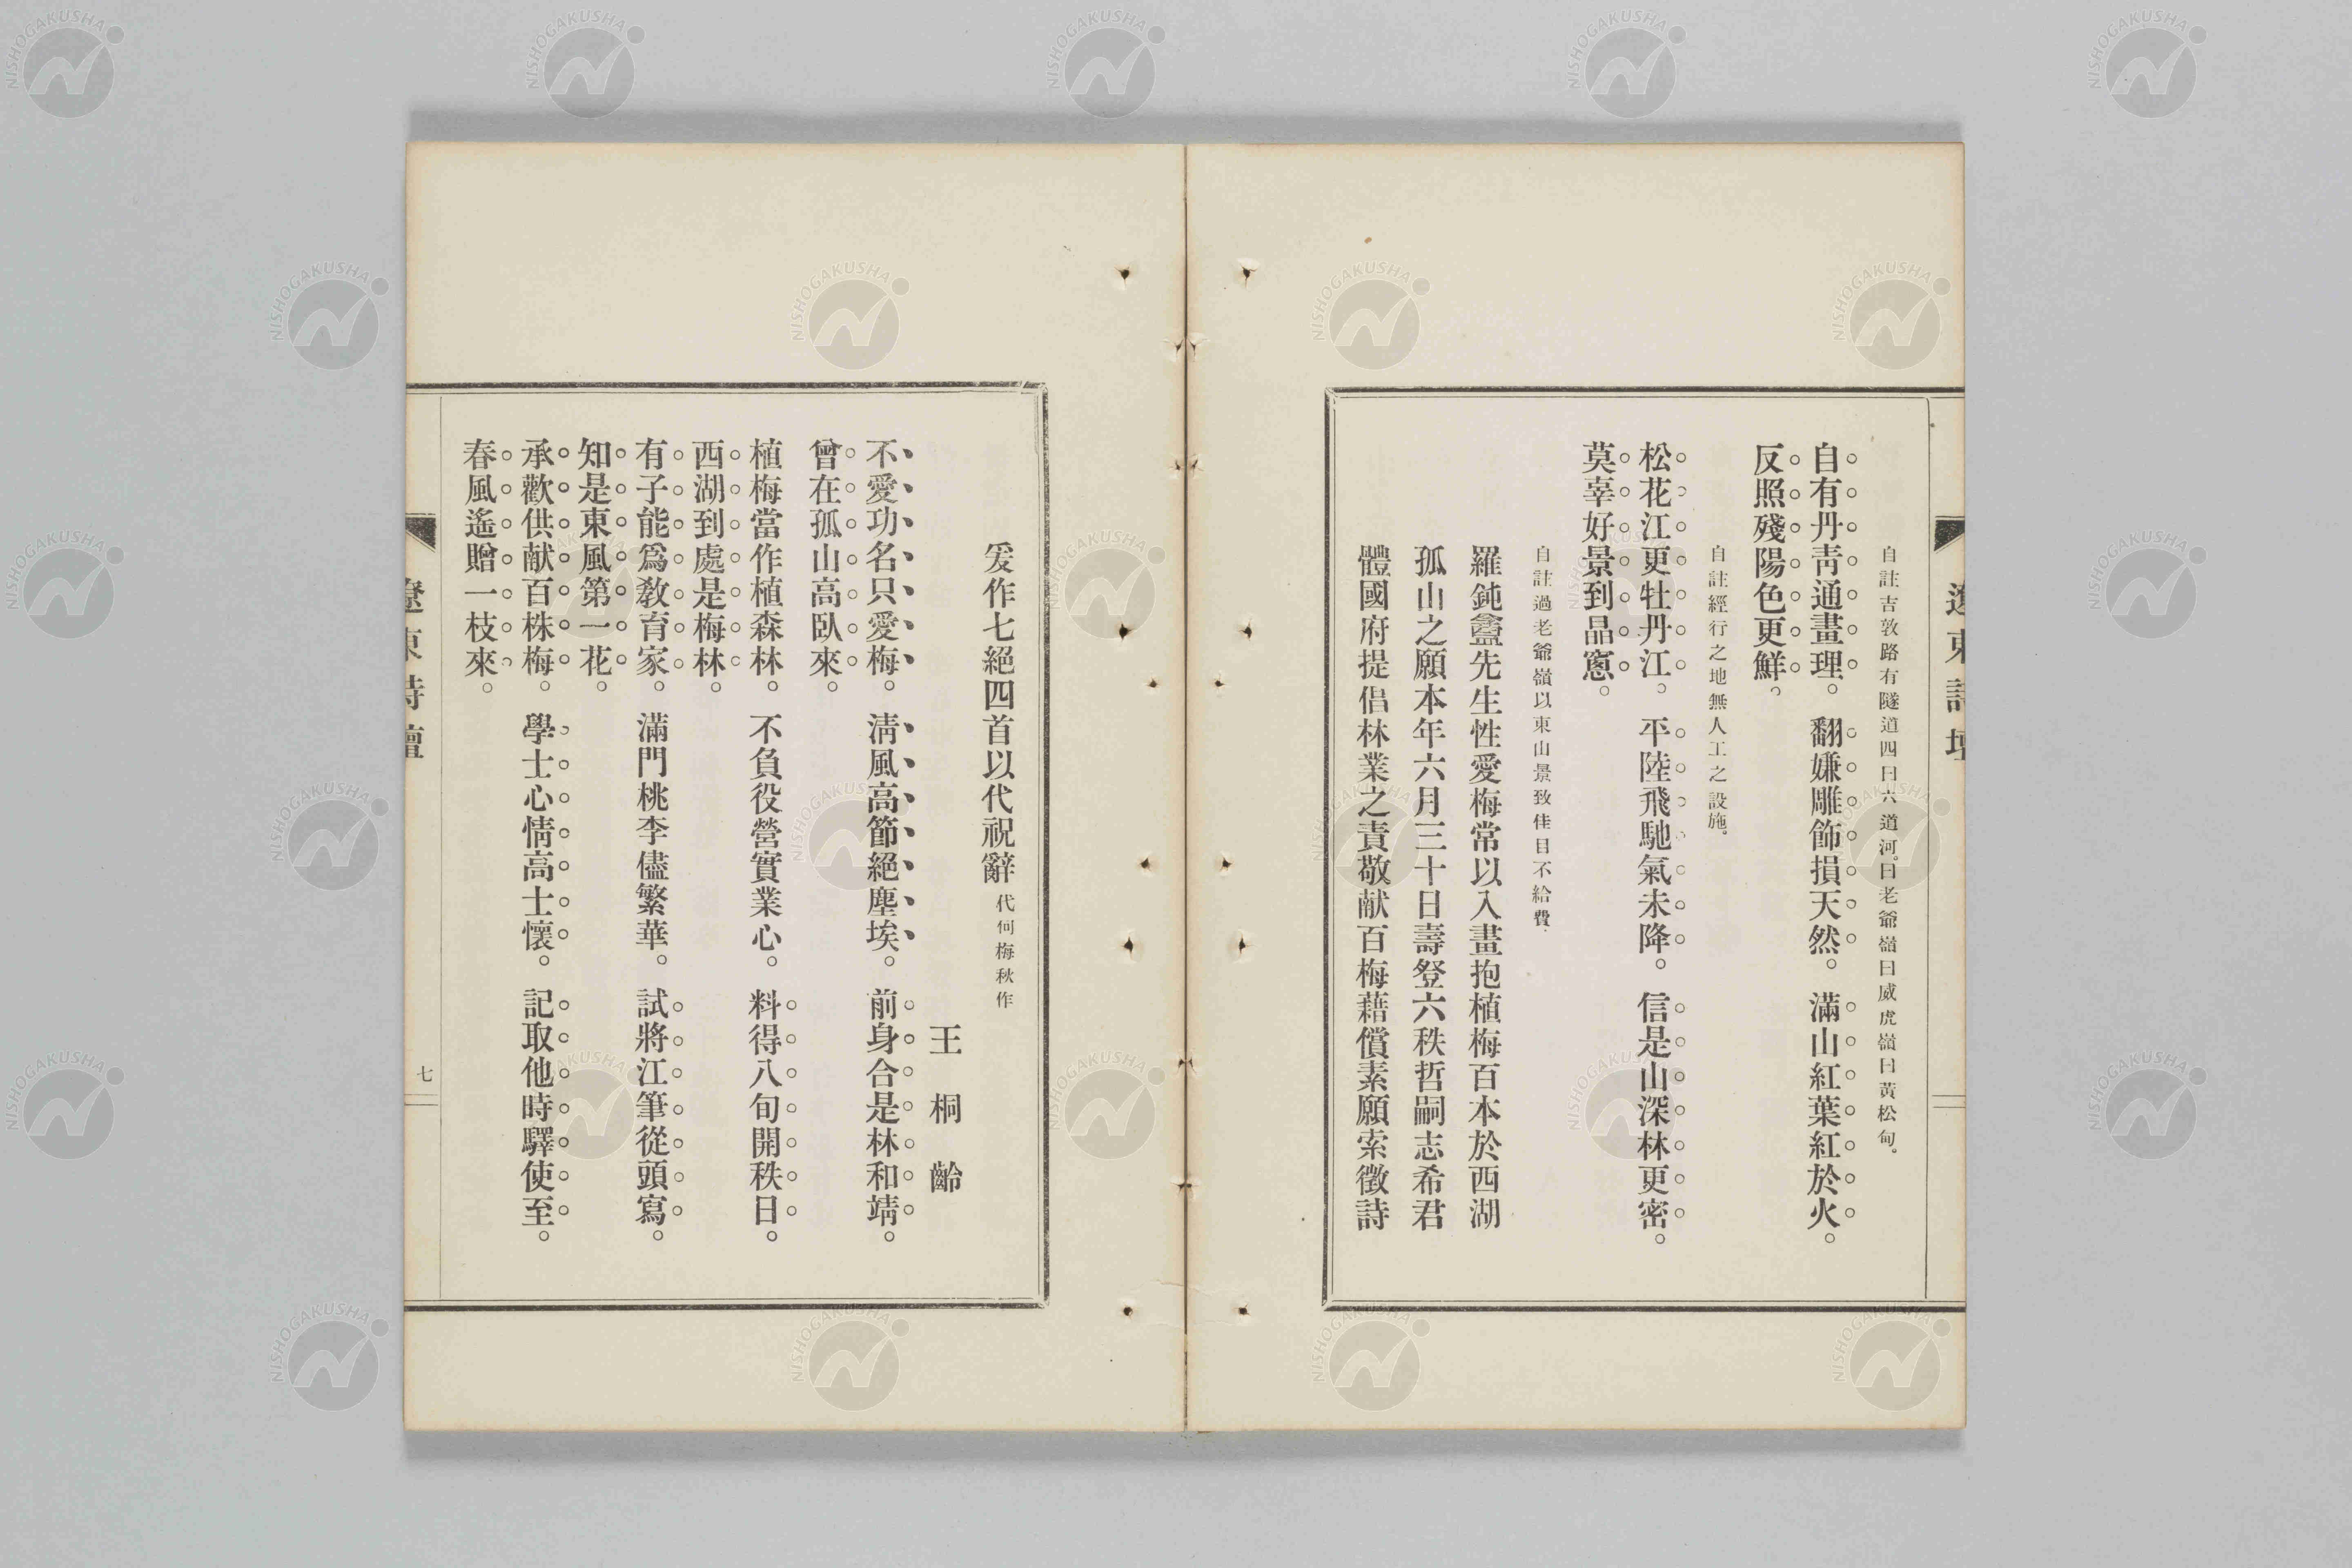 遼東詩壇
自註吉敦路有隧道四曰六道河。曰老爺嶺曰威虎嶺曰黃松甸。
自有丹靑通畫理。翻嫌雕飾損天然。滿山紅葉紅於火。
反照殘陽色更鮮。
自註經行之地無人工之設施。
松花江更牡丹江。平陸飛馳氣未降。信是山深林更密。
莫辜好景到品窻。
自註過老爺嶺以東山景致佳目不給賞.
羅鈍盦先生性愛梅常以入畫抱植梅百本於西湖
孤山之願本年六月三十日壽登六秩哲嗣志希君
體國府提倡林業之責敬献百梅藉償素願索徵詩
爰作七絕四首以代祝辭 代何梅秋作
王桐齡
不愛功名只愛梅。淸風高節絕塵埃。前身合是林和靖。
曾在孤山高臥來。
植梅當作植森林。不負役營實業心。料得八旬開秩日。
西湖到處是梅林。
有子能爲敎育家。滿門桃李儘繁華。試將江筆從頭寫。
知是東風第一花。
承歡供献百株梅。學士心情高士懷。記取他時驛使至。
春風遙贈一枝來。
遼東詩壇
七
NISHOGAKUSHA